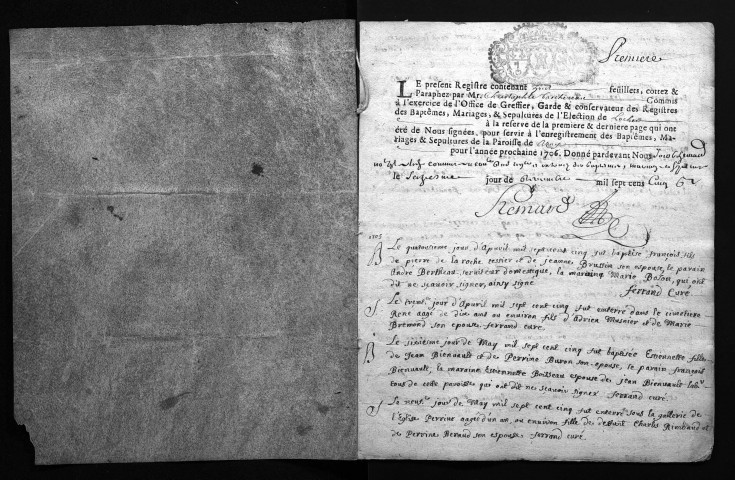 Premiere
LE present Registre contenant feuillets, cottez &
Paraphez par Mr. Commis
à l'exercice de l'Office de Greffier, Garde & conservateur des Registres
des Baptêmes, Mariages, & Sepultures de l'Election de Loches
à la reserve de la premiere & derniere page qui ont
été de Nous signées, pour servir à l'enregistrement des Baptêmes, Ma-
riages & Sepultures de la Paroisse de
pour l'année prochaine 1706. Donné pardevant Nous
le jour de mil sept cens Cinq
1705
B Le quatorsieme jour d'Apvril mil sept cens cinq fut baptisé françois fils
de pierre de la roche tessier et de jeanne Brussin son espouse, le parain
André Bertheau serviteur domestique, la maraine Marie Boton, qui ont
dit ne scavoir signer, ainsy signé
ferrand Curé
S Le jour d'Apvril mil sept cent cinq fut enterré dans le cimetiere
René aagé de dix ans ou environ fils d'Adrien Musnier et de Marie
Bremond son epouse. ferrand curé.
B Le sixiesme jour de May mil sept cent cinq fut baptisée Estiennette fille
de Jean Bienvault et de Perrine Buron son espouse, le parain françois
Bienvault, la maraine Estiennette Boisseau espouse de jean Bienvault
tous de cette paroisse qui ont dit ne scavoir signer ferrand curé.
S Le jour de May mil sept cent cinq fut enterrée sous la gallerie de
l'Eglise Perrine aagée d'un an, ou environ fille de deffunt Charles Rimbaud et
de Perrine Beraud son espouse ferrand curé.